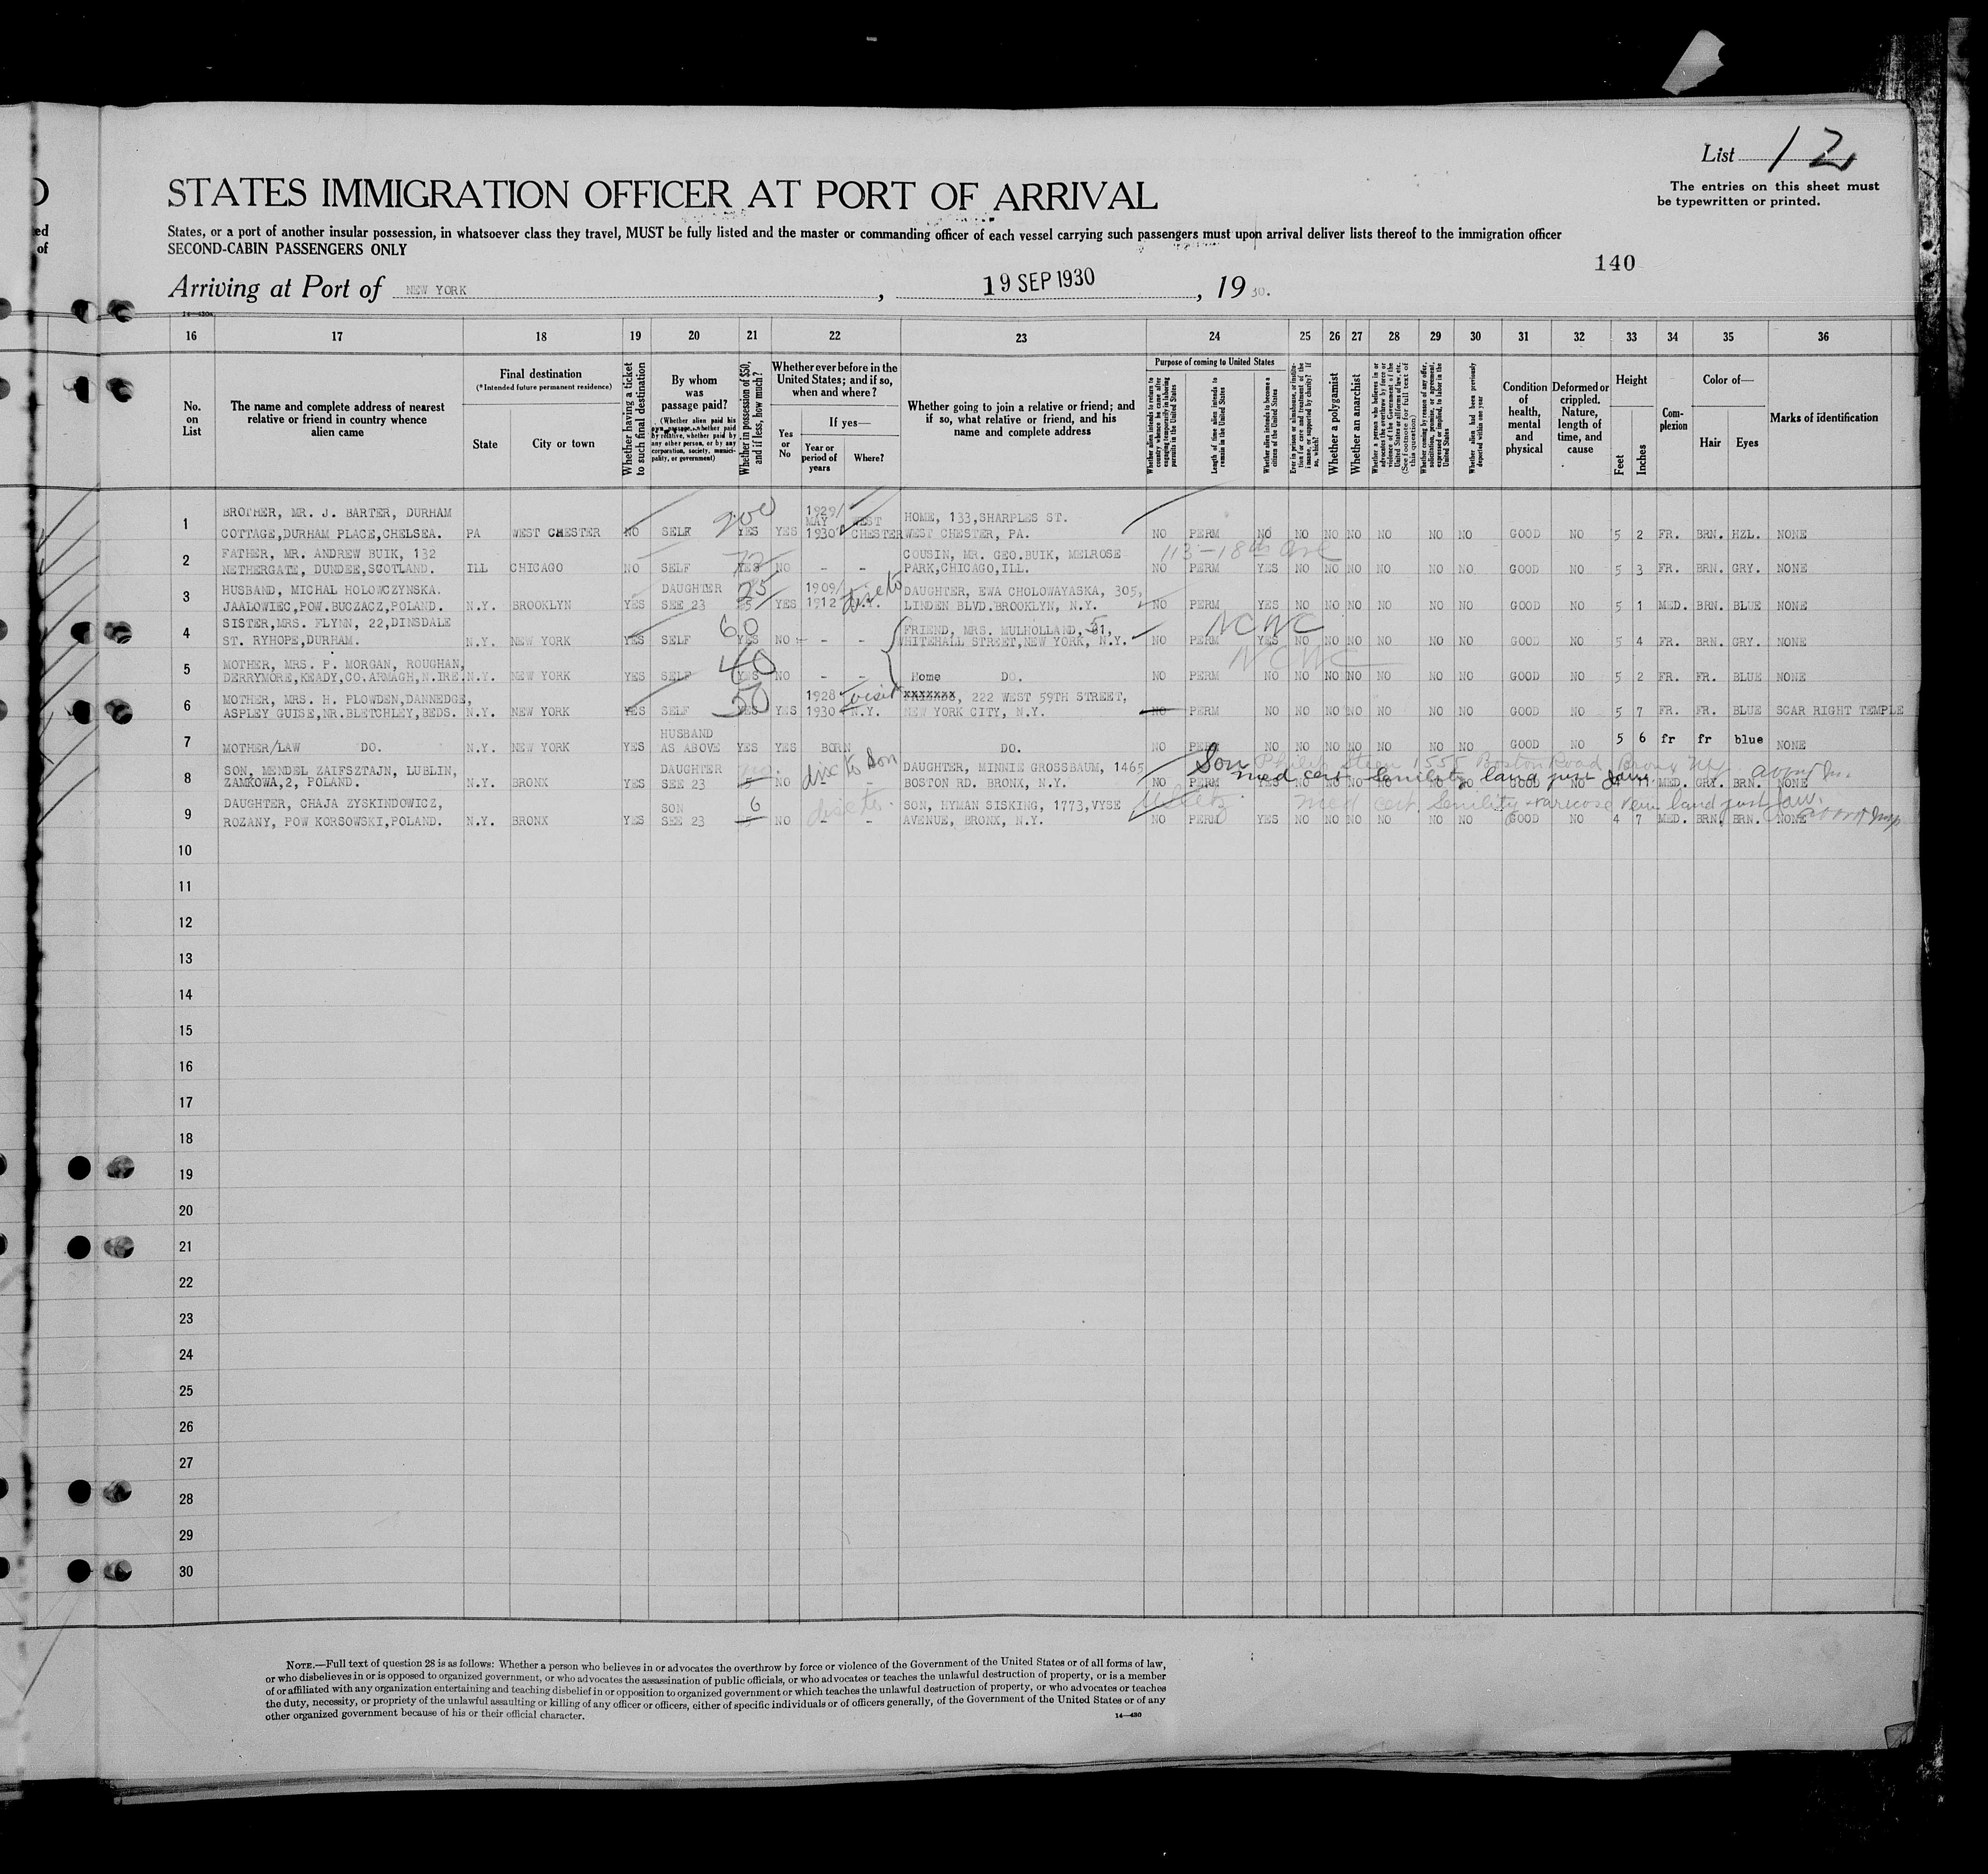 List 12
The entries on this sheet must
be typewritten or printed.
STATES IMMIGRATION OFFICER AT PORT OF ARRIVAL
States, or a port of another insular possession, in whatsoever class they travel, MUST be fully listed and the master or commanding officer of each vessel carrying such passengers must upon arrival deliver lists thereof to the immigration officer
SECOND-CABIN PASSENGERS ONLY
140
Arriving at Port of NEW YORK , 19 SEP 1930 , 19 30.
16 17 18 19 20 21 22 23 24 25 26 27 28 29 30 31 32 33 34 35 36
No. on List
The name and complete address of nearest relative or friend in country whence alien came
Final destination
(*Intended future permanent residence)
State
City or town
Whether having a ticket to such final destination
By whom was passage paid?
(Whether alien paid his own passage, whether paid by relative, whether paid by any other person, or by any corporation, society, municipality, or government)
Whether in possession of $50, and if less, how much?
Whether ever before in the United States; and if so, when and where?
Yes or No
If yes—
Year or period of years
Where?
Whether going to join a relative or friend; and if so, what relative or friend, and his name and complete address
Purpose of coming to United States
Whether alien intends to return to country whence he came after engaging temporarily in laboring pursuits in the United States
Length of time alien intends to remain in the United States
Whether alien intends to become a citizen of the United States
Ever in prison or almshouse, or institution for care and treatment of the insane, or supported by charity? If so, which?
Whether a polygamist
Whether an anarchist
Whether a person who believes in or advocates the overthrow by force or violence of the Government of the United States or all forms of law, etc. (See footnote for full text of this question)
Whether coming by reason of any offer, solicitation, promise, or agreement, expressed or implied, to labor in the United States
Whether alien had been previously deported within one year
Condition of health, mental and physical
Deformed or crippled. Nature, length of time, and cause
Height
Feet
Inches
Complexion
Color of—
Hair
Eyes
Marks of identification
BROTHER, MR. J. BARTER, DURHAM 200 1929/ MAY WEST HOME, 133,SHARPLES ST.
1 COTTAGE,DURHAM PLACE,CHELSEA. PA WEST CHESTER NO SELF YES YES 1930 CHESTER WEST CHESTER, PA. NO PERM NO NO NO NO NO NO NO GOOD NO 5 2 FR. BRN. HZL. NONE
FATHER, MR. ANDREW BUIK, 132 COUSIN, MR. GEO.BUIK, MELROSE 113-18th Ave
2 NETHERGATE, DUNDEE,SCOTLAND. ILL CHICAGO NO SELF YES NO - - PARK,CHICAGO,ILL. NO PERM YES NO NO NO NO NO NO GOOD NO 5 3 FR. BRN. GRY. NONE
HUSBAND, MICHAL HOLOWCZYNSKA. DAUGHTER 25 1909/ DAUGHTER, EWA CHOLOWAYASKA, 305,
3 JAALOWIEC,POW.BUCZACZ,POLAND. N.Y. BROOKLYN YES SEE 23 YES 1912 N.Y. LINDEN BLVD.BROOKLYN, N.Y. NO PERM YES NO NO NO NO NO NO GOOD NO 5 1 MED. BRN. BLUE NONE
SISTER,MRS. FLYNN, 22,DINSDALE 60 FRIEND, MRS. MULHOLLAND, 51, NCWC
4 ST. RYHOPE,DURHAM. N.Y. NEW YORK YES SELF YES NO - - WHITEHALL STREET,NEW YORK, N.Y. NO PERM YES NO NO NO NO NO NO GOOD NO 5 4 FR. BRN. GRY. NONE
MOTHER, MRS. P. MORGAN, ROUGHAN, 40 NCWC
5 DERRYMORE,KEADY,CO.ARMAGH,N.IRE. N.Y. NEW YORK YES SELF YES NO - - Home DO. NO PERM NO NO NO NO NO NO NO GOOD NO 5 2 FR. FR. BLUE NONE
MOTHER, MRS. H. PLOWDEN,DANNEDGE, 50 1928- visit XXXXXXX, 222 WEST 59TH STREET,
6 ASPLEY GUISE,NR.BLETCHLEY,BEDS. N.Y. NEW YORK YES SELF YES YES 1930 N.Y. NEW YORK CITY, N.Y. NO PERM NO NO NO NO NO NO NO GOOD NO 5 7 FR. FR. BLUE SCAR RIGHT TEMPLE
HUSBAND
7 MOTHER/LAW DO. N.Y. NEW YORK YES AS ABOVE YES YES BORN DO. NO PERM NO NO NO NO NO NO NO GOOD NO 5 6 fr fr blue NONE
SON, MENDEL ZAIFSZTAJN, LUBLIN, DAUGHTER disc to Son DAUGHTER, MINNIE GROSSBAUM, 1465 Son Philip Stein 1555 Boston Road Bronx NY
med cert Senility land just
8 ZAMKOWA,2, POLAND. N.Y. BRONX YES SEE 23 5 NO - - BOSTON RD. BRONX, N.Y. NO PERM YES NO NO NO NO NO NO GOOD NO 4 11 MED. GRY. BRN. NONE
DAUGHTER, CHAJA ZYSKINDOWICZ, SON 6 disc to SON, HYMAN SISKING, 1773,VYSE med cert. Senility varicose vein land just law.
9 ROZANY, POW KORSOWSKI,POLAND. N.Y. BRONX YES SEE 23 5 NO - - AVENUE, BRONX, N.Y. NO PERM YES NO NO NO NO NO NO GOOD NO 4 7 MED. BRN. BRN. NONE
10
11
12
13
14
15
16
17
18
19
20
21
22
23
24
25
26
27
28
29
30
NOTE.—Full text of question 28 is as follows: Whether a person who believes in or advocates the overthrow by force or violence of the Government of the United States or of all forms of law,
or who disbelieves in or is opposed to organized government, or who advocates the assassination of public officials, or who advocates or teaches the unlawful destruction of property, or is a member
of or affiliated with any organization entertaining and teaching disbelief in or opposition to organized government or which teaches the unlawful destruction of property, or who advocates or teaches
the duty, necessity, or propriety of the unlawful assaulting or killing of any officer or officers, either of specific individuals or of officers generally, of the Government of the United States or of any
other organized government because of his or their official character.
14—430